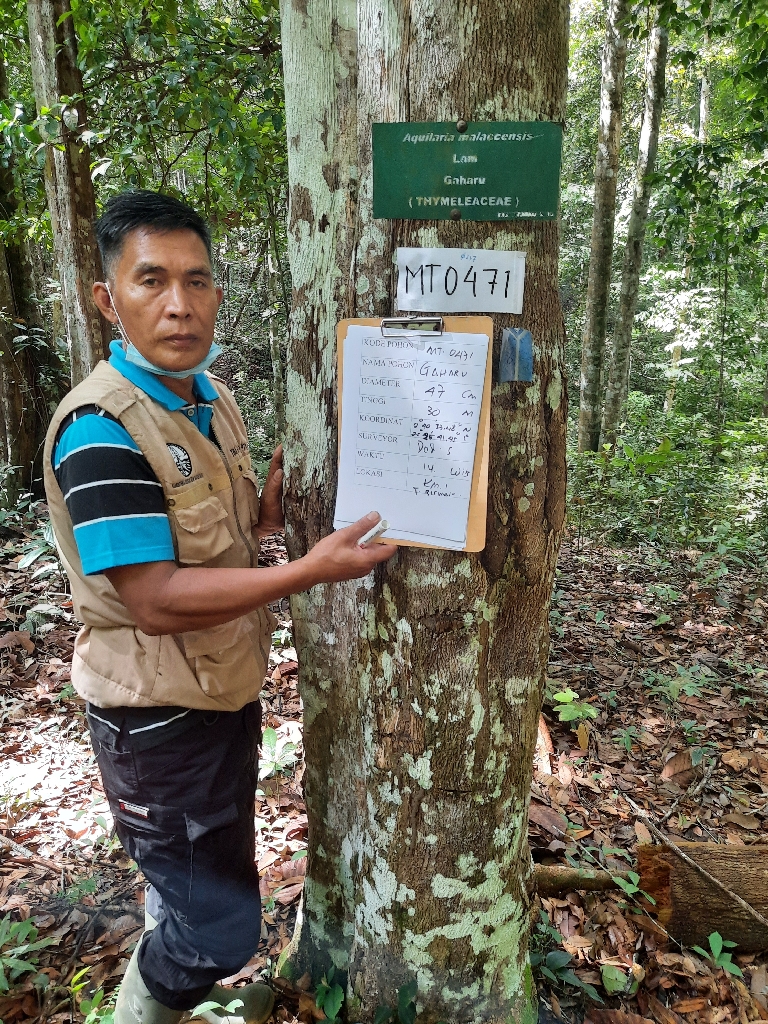 Aquilaria malaccensis
Lam
Gaharu
( THYMELEACEAE )
MT0471
KODE POHON MT 0471
NAMA POHON GAHARU
DIAMETER 47 Cm
TINGGI 30 M
KOORDINAT
SURVEYOR
WAKTU 14
LOKASI KM 1